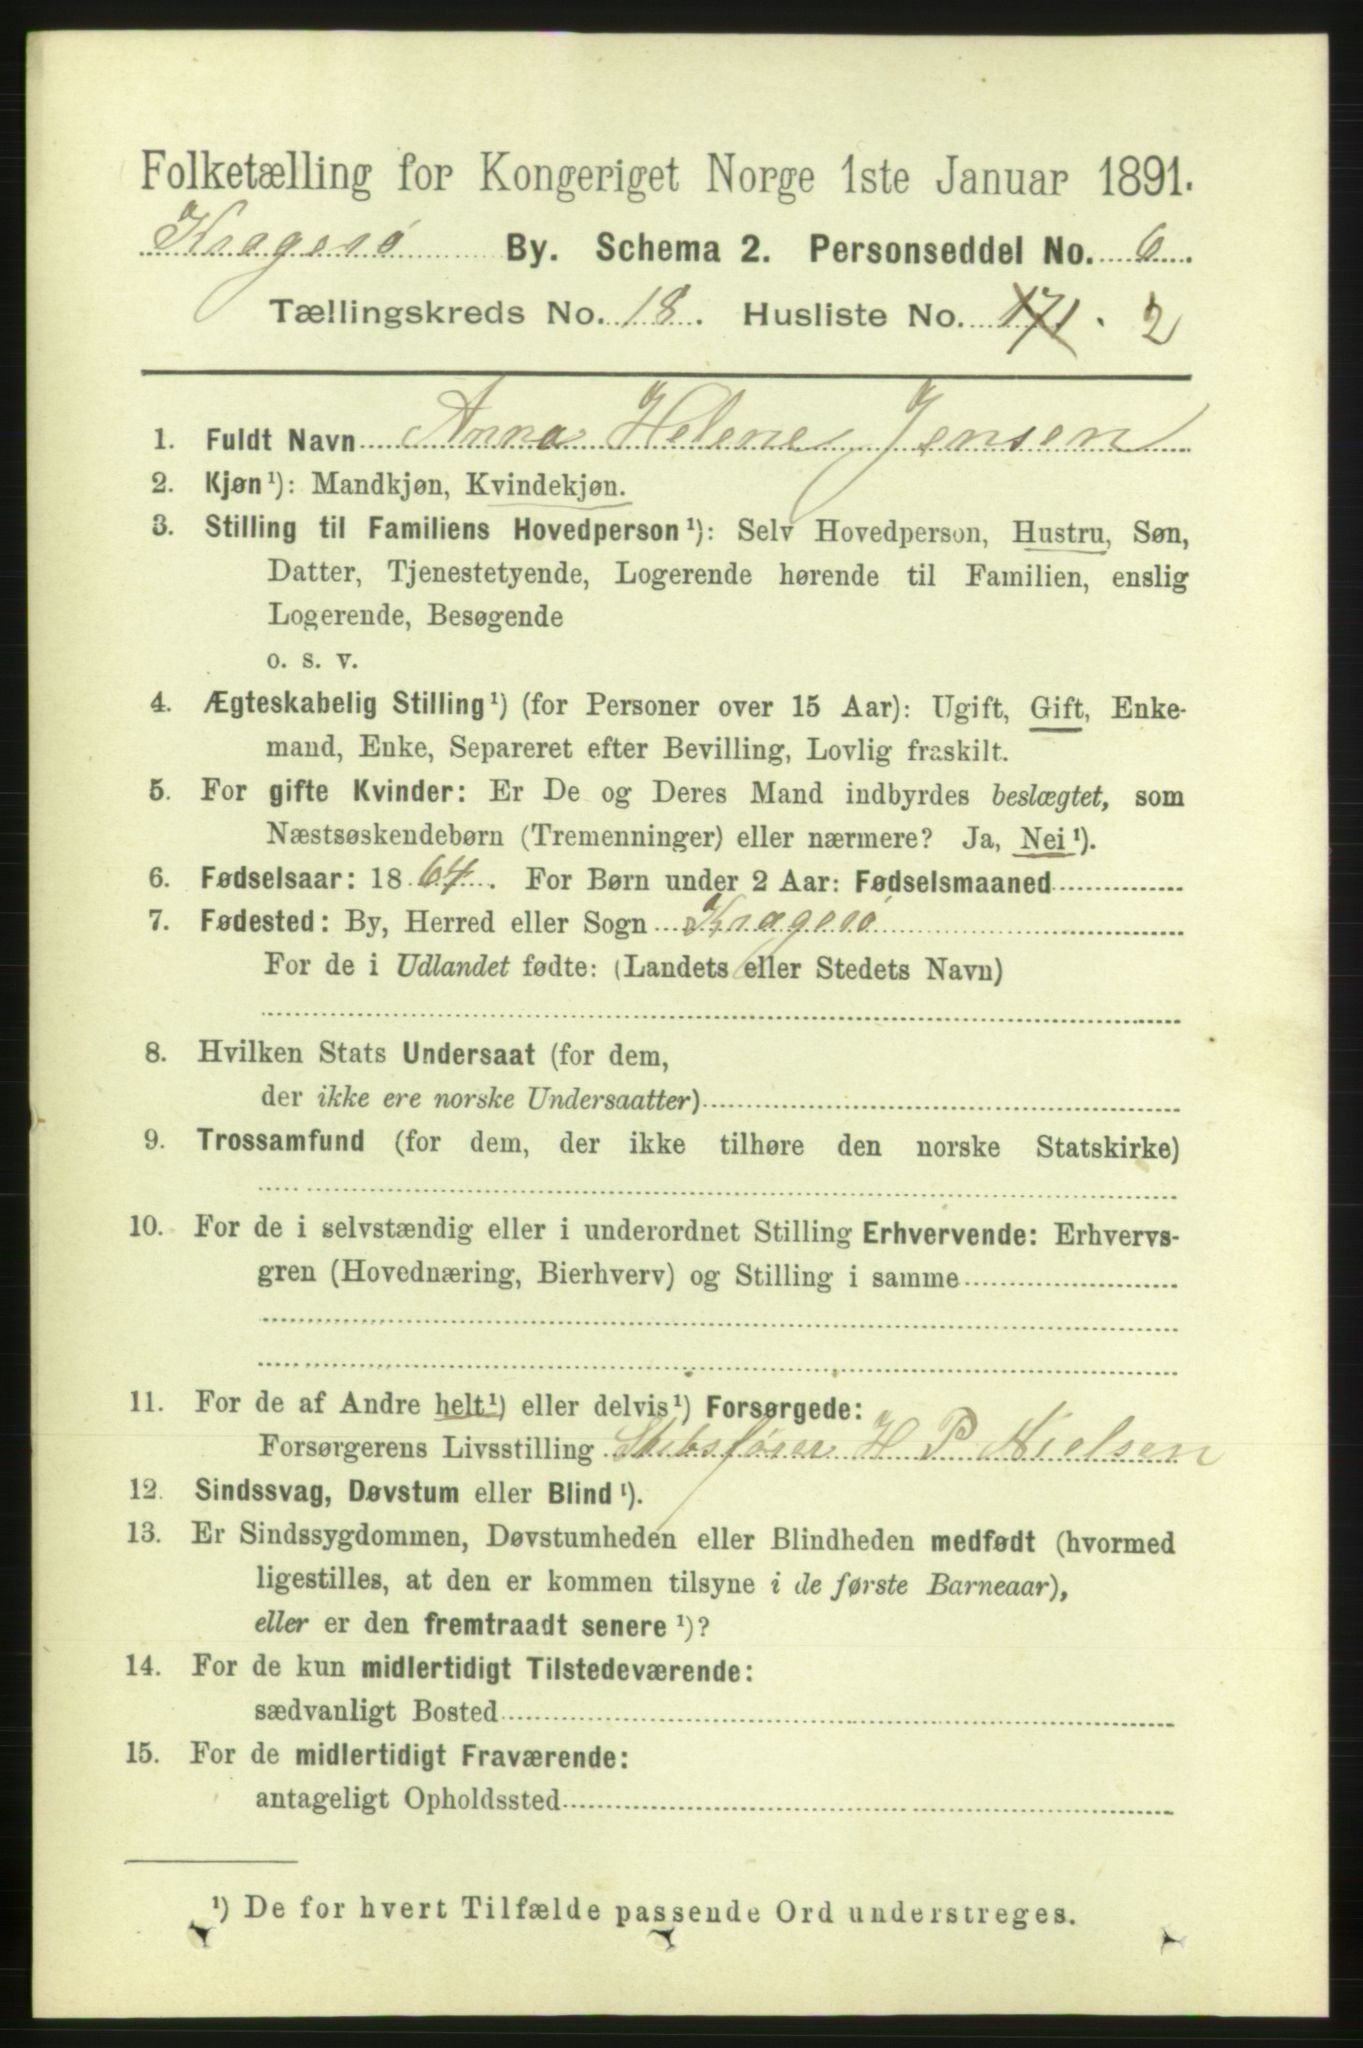 Folketælling for Kongeriget Norge 1ste Januar 1891.
Kragerø By. Schema 2. Personseddel No. 6.
Tællingskreds No. 18. Husliste No. 171. 2
1. Fuldt Navn Anna Helene Jensen
2. Kjøn¹): Mandkjøn, Kvindekjøn.
3. Stilling til Familiens Hovedperson¹): Selv Hovedperson, Hustru, Søn,
Datter, Tjenestetyende, Logerende hørende til Familien, enslig
Logerende, Besøgende
o. s. v.
4. Ægteskabelig Stilling¹) (for Personer over 15 Aar): Ugift, Gift, Enke-
mand, Enke, Separeret efter Bevilling, Lovlig fraskilt.
5. For gifte Kvinder: Er De og Deres Mand indbyrdes beslægtet, som
Næstsøskendebørn (Tremenninger) eller nærmere? Ja, Nei¹).
6. Fødselsaar: 1864. For Børn under 2 Aar: Fødselsmaaned
7. Fødested: By, Herred eller Sogn Kragerø
For de i Udlandet fødte: (Landets eller Stedets Navn)
8. Hvilken Stats Undersaat (for dem,
der ikke ere norske Undersaatter)
9. Trossamfund (for dem, der ikke tilhøre den norske Statskirke)
10. For de i selvstændig eller i underordnet Stilling Erhvervende: Erhvervs-
gren (Hovednæring, Bierhverv) og Stilling i samme
11. For de af Andre helt¹) eller delvis¹) Forsørgede:
Forsørgerens Livsstilling Skibsfører H P Nielsen
12. Sindssvag, Døvstum eller Blind¹).
13. Er Sindssygdommen, Døvstumheden eller Blindheden medfødt (hvormed
ligestilles, at den er kommen tilsyne i de første Barneaar),
eller er den fremtraadt senere¹)?
14. For de kun midlertidigt Tilstedeværende:
sædvanligt Bosted
15. For de midlertidigt Fraværende:
antageligt Opholdssted
¹) De for hvert Tilfælde passende Ord understreges.